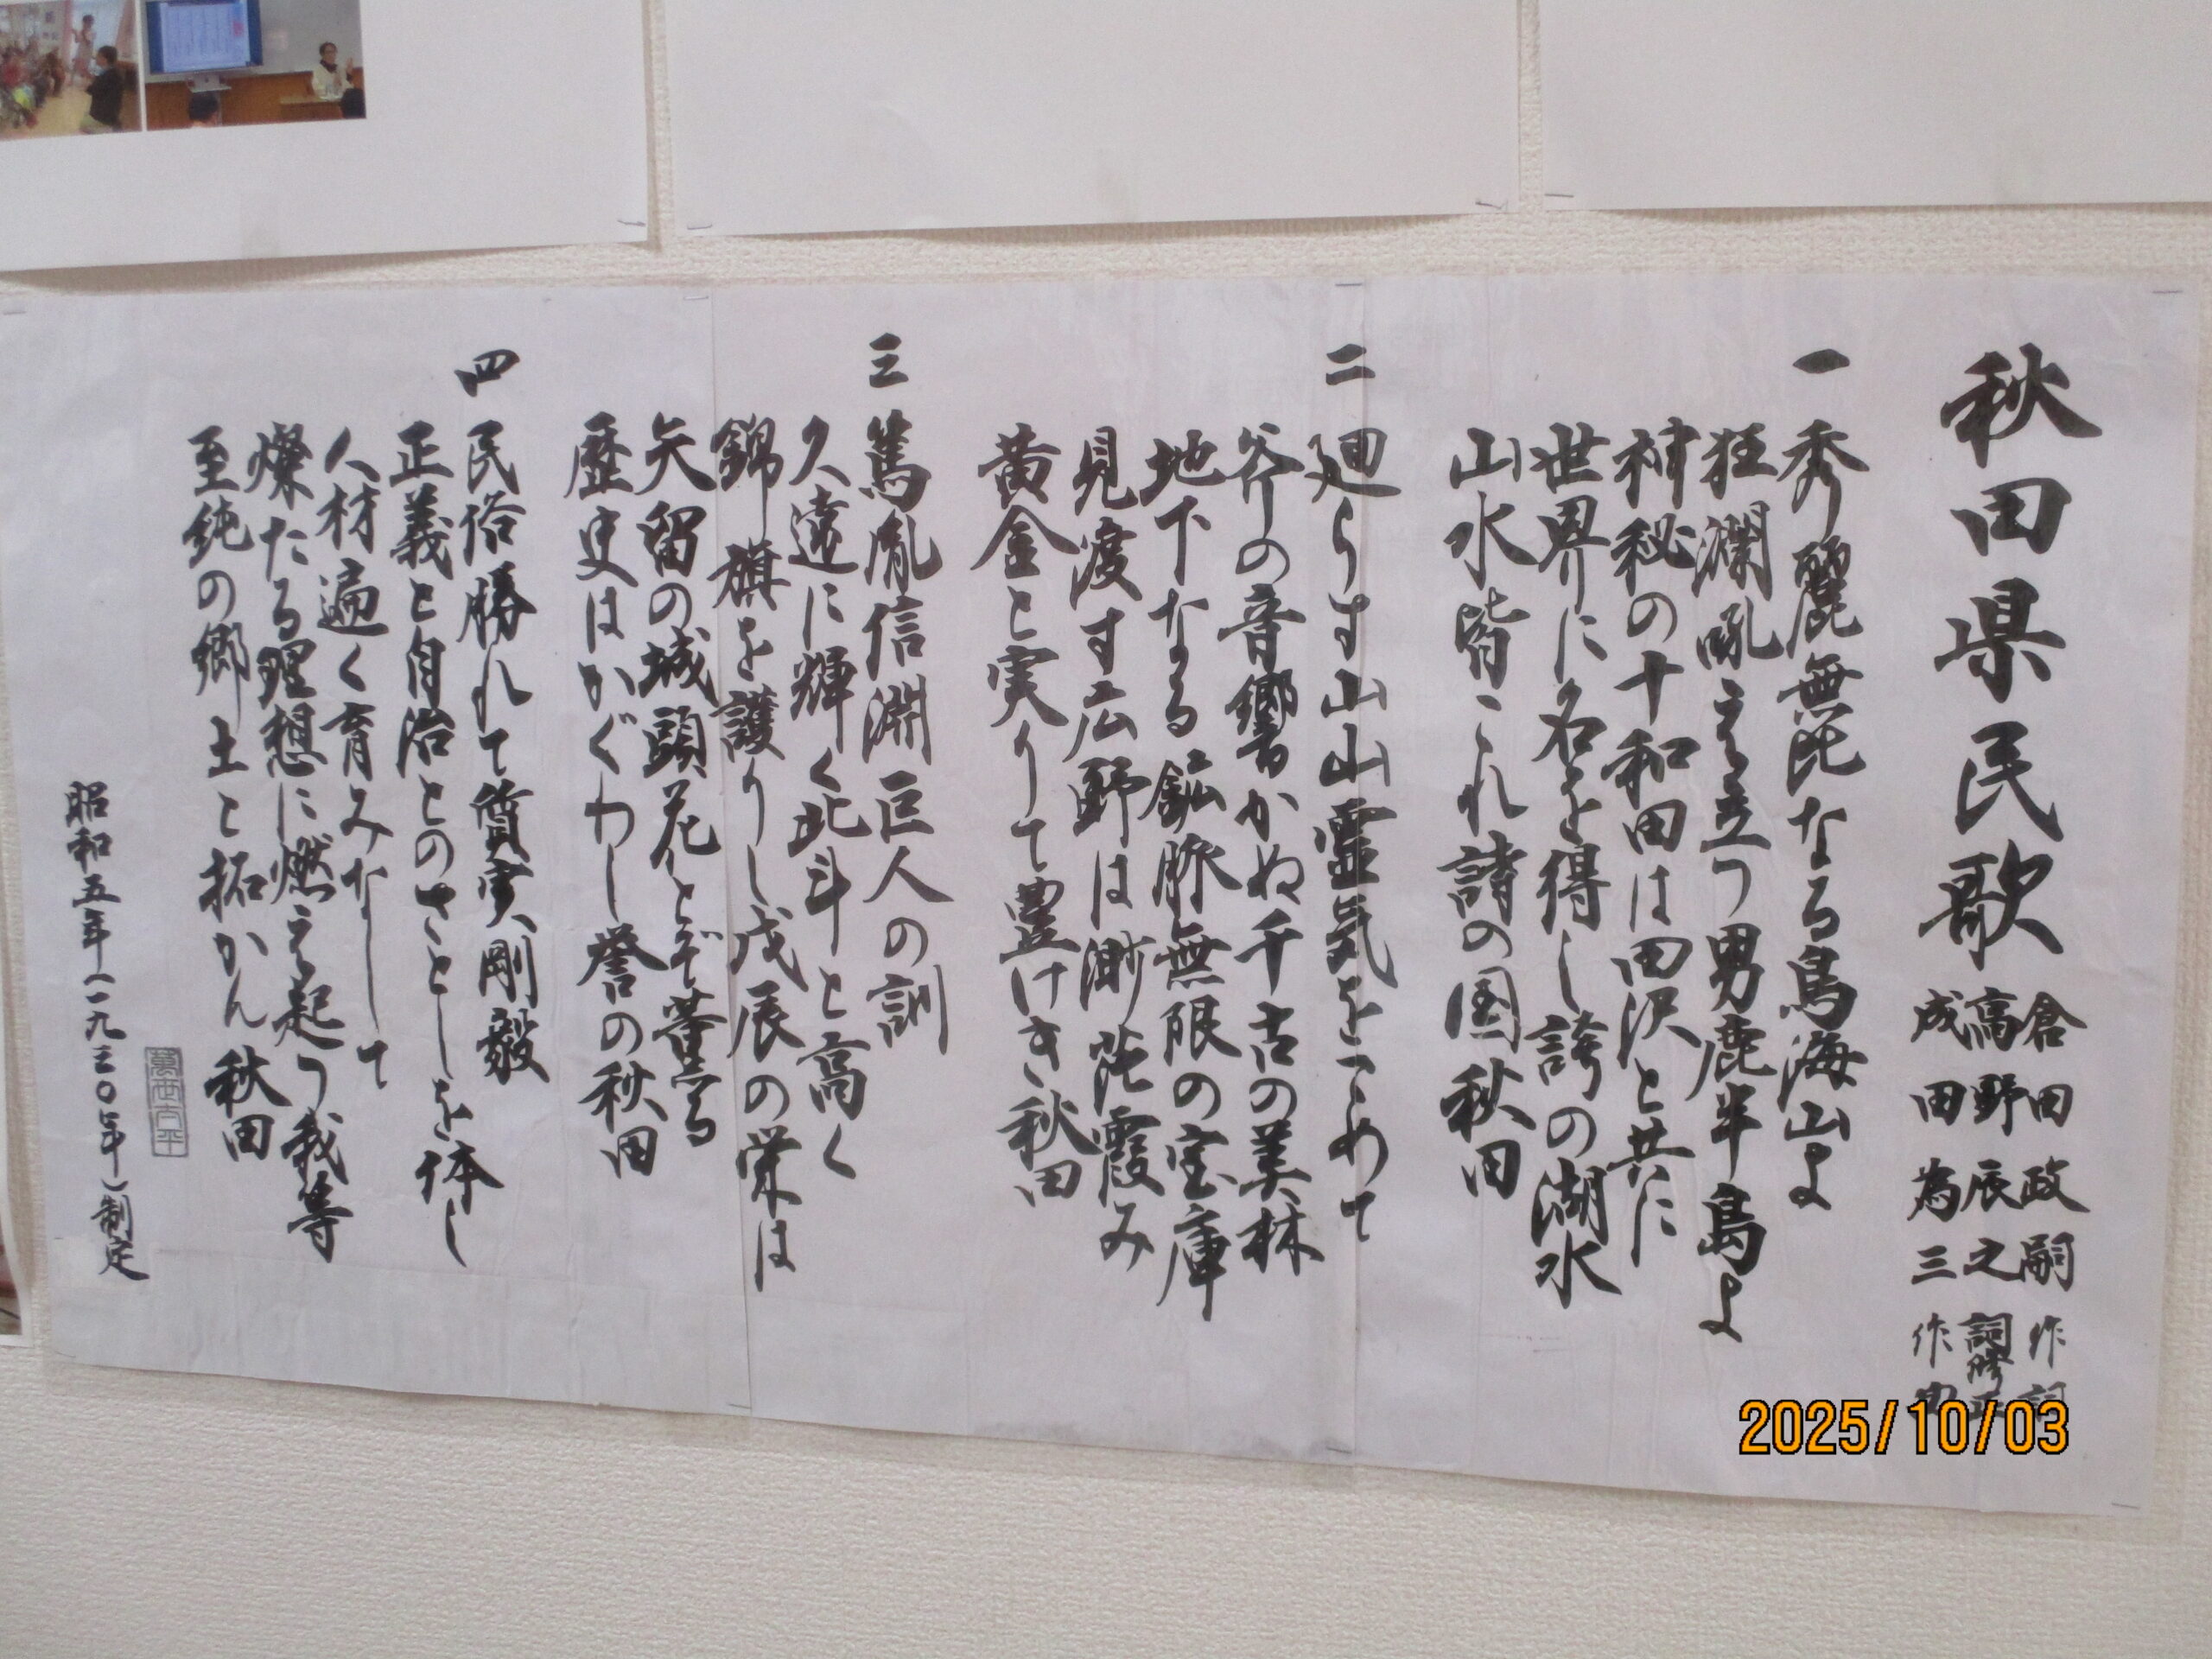 秋田県民歌
倉田政嗣 作詞
高野辰之 詞修正
成田為三 作曲
一 秀麗無比なる鳥海山よ
狂瀾吼え立つ男鹿半島よ
神秘の十和田は田沢と共に
世界に名を得し誇の湖水
山水皆これ詩の国秋田
二 廻らす山山霊気をこめて
斧の音響かぬ千古の美林
地下なる鉱脈無限の宝庫
見渡す広野は渺茫霞み
黄金と実りて豊けき秋田
三 篤胤信淵巨人の訓
久遠に輝く北斗と高く
錦旗を護りし戊辰の栄は
矢留の城頭花とぞ薫る
歴史はかぐわし誉の秋田
四 民俗勝れて質実剛毅
正義と自治とのさとしを体し
人材遍く育みなして
燦たる理想に燃え起つ我等
至純の郷土と拓かん秋田
昭和五年(一九三〇年)制定
2025/10/03